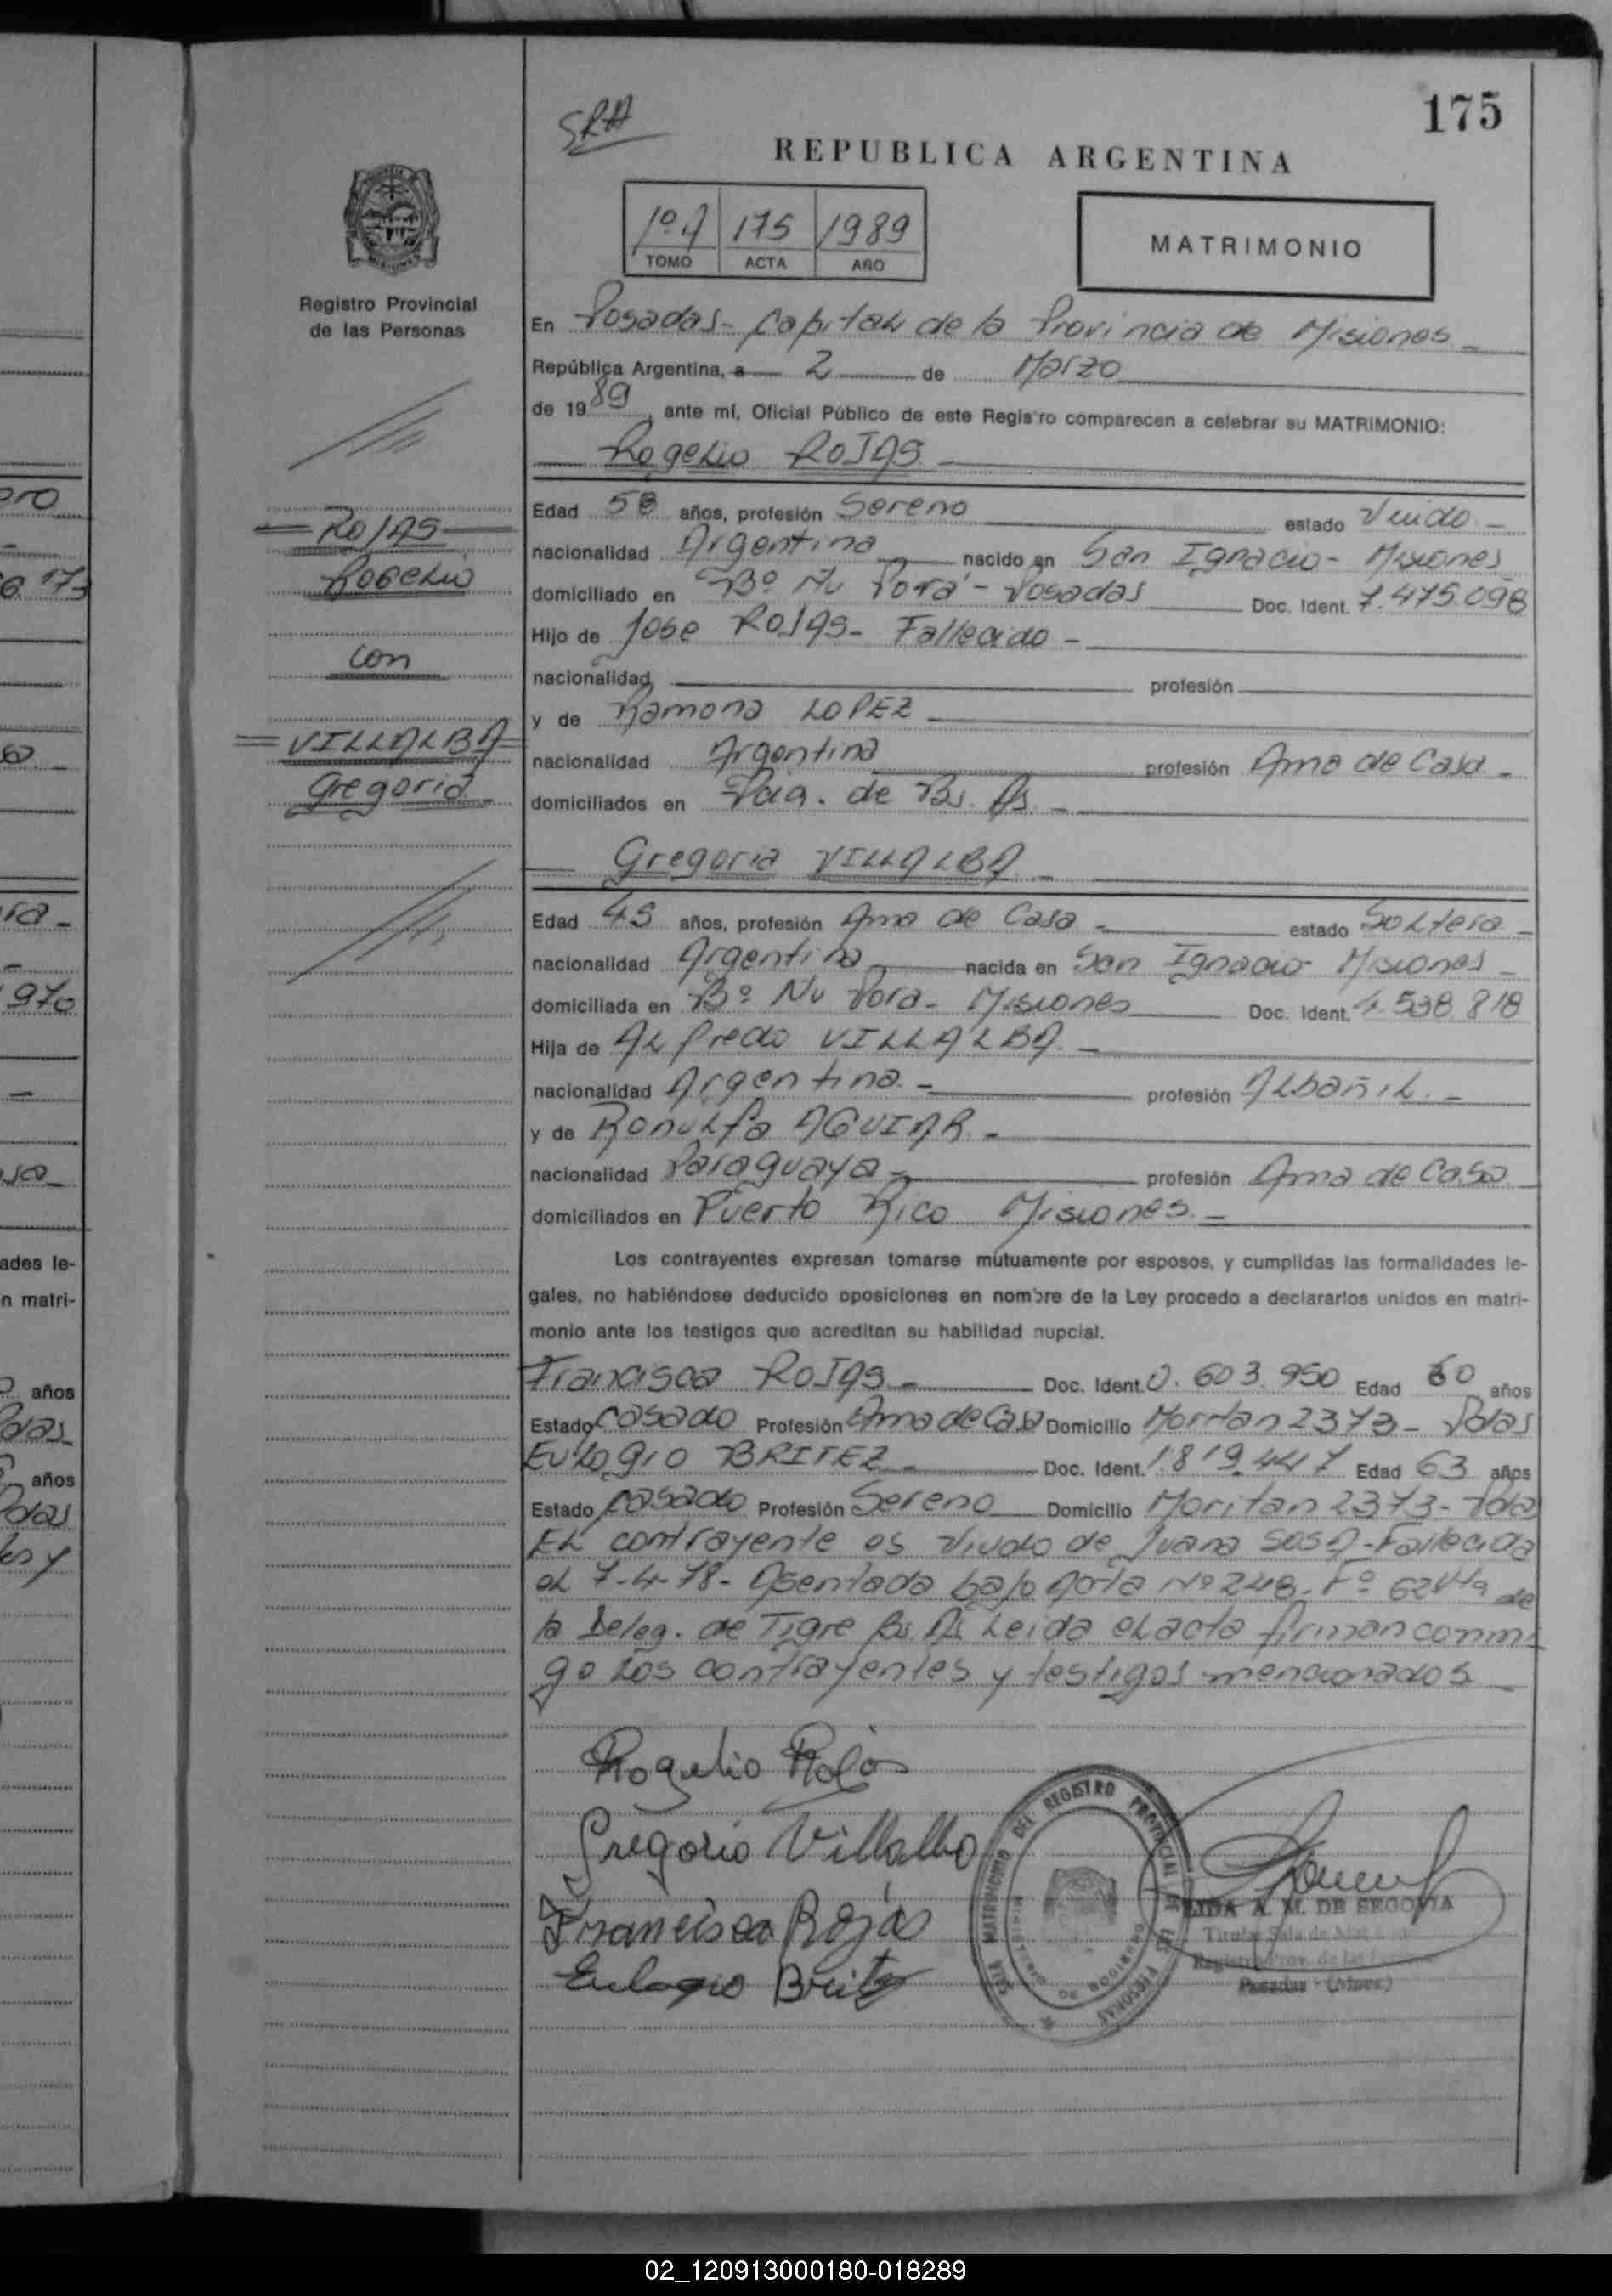 175
SRA
REPUBLICA ARGENTINA
1º A 175 1989
TOMO ACTA AÑO
MATRIMONIO
Registro Provincial
de las Personas
ROJAS
Rogelio
con
VILLALBA
Gregoria
En Posadas - Capital de la Provincia de Misiones
República Argentina, a 2 de Marzo
de 1989, ante mí, Oficial Público de este Registro comparecen a celebrar su MATRIMONIO:
Rogelio ROJAS
Edad 58 años, profesión Sereno estado Viudo
nacionalidad Argentina nacido en San Ignacio - Misiones
domiciliado en Bº Ñu Porá - Posadas Doc. Ident. 7.475.098
Hijo de Jose ROJAS - Fallecido -
nacionalidad profesión
y de Ramona LOPEZ
nacionalidad Argentina profesión Ama de Casa -
domiciliados en Pcia. de Bs. As. -
Gregoria VILLALBA -
Edad 45 años, profesión Ama de Casa - estado Soltera -
nacionalidad Argentina nacida en San Ignacio Misiones -
domiciliada en Bº Ñu Pora - Misiones Doc. Ident. 4.538.818
Hija de Alfredo VILLALBA -
nacionalidad Argentina - profesión Albañil -
y de Ronulfa AGUIAR -
nacionalidad Paraguaya - profesión Ama de Casa
domiciliados en Puerto Rico Misiones -
Los contrayentes expresan tomarse mutuamente por esposos, y cumplidas las formalidades le-
gales, no habiéndose deducido oposiciones en nombre de la Ley procedo a declararlos unidos en matri-
monio ante los testigos que acreditan su habilidad nupcial.
Francisca ROJAS - Doc. Ident. 0.603.950 Edad 60 años
Estado Casado Profesión Ama de Casa Domicilio 2373 - Pdas
Eulogio BRITEZ - Doc. Ident. 1.819.447 Edad 63 años
Estado Casado Profesión Sereno Domicilio Moritan 2373 - Pdas
El contrayente es Viudo de Juana SOSA - Fallecida
el 7-4-78 - Asentada bajo Acta Nº 248 - Fº 62 Vta de
la Deleg. de Tigre Bs As Leida el acta firman conmi
go los contrayentes y testigos mencionados
Rogelio Rojas
Gregoria Villalba
Francisca Rojas
Eulogio Britez
SALA MATRIMONIO DEL REGISTRO PROVINCIAL DE LAS PERSONAS
LIDA A. M. DE SEGOVIA
Titular Sala de
Registro Prov. de las
Posadas - (Mnes.)
ero
173
ra -
970
ades le-
n matri-
años
Pdas
años
Pdas
y
02_120913000180-018289